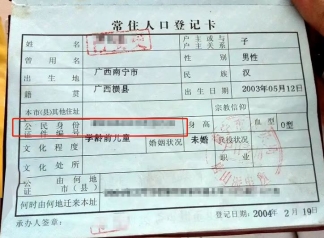 常住人口登记卡
姓名 户主或与户主关系 子
曾用名 性别 男性
出生地 广西南宁市 民族 汉
籍贯 广西横县 出生日期 2003年05月12日
本市(县)其他住址 宗教信仰
公民身份证件编号 身高 血型 O型
文化程度 学龄前儿童 婚姻状况 未婚 兵役状况
职业
何时由何地迁来本市(县)
何时何地迁来本址
承办人签章: 登记日期:2004年2月19日